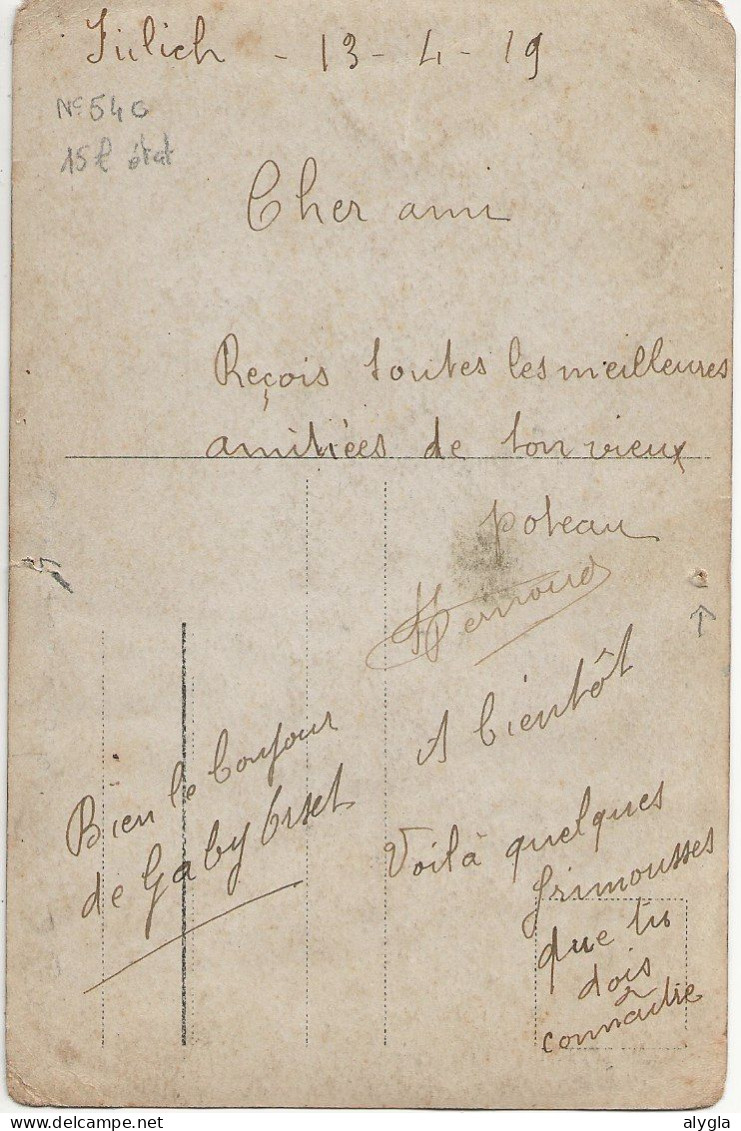 Julich - 13-4-19
N° 540
15€ état
Cher ami
Reçois toutes les meilleures
amitiées de ton vieux
poteau
Fernand
A bientôt
Bien le bonjour
de Gaby
Voilà quelques
frimousses
que tu
dois
connaitre
alygla